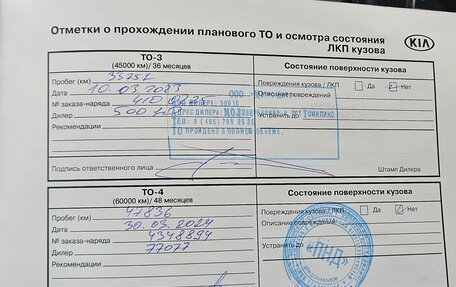 Отметки о прохождении планового ТО и осмотра состояния
ЛКП кузова
KIA
ТО-3
(45000 км)/ 36 месяцев
Состояние поверхности кузова
Пробег (км)
Повреждения кузова / ЛКП
Да
Нет
Дата 10.03.2023
Описание повреждений
№ заказа-наряда
Дилер
Устранить до
Рекомендации
ООО
КОД ДИЛЕРА:
АДРЕС ДИЛЕРА: ТОМИЛИНО
ТО ПРОЙДЕНО В ПОЛНОМ ОБЪЕМЕ.
Подпись ответственного лица
Штамп Дилера
ТО-4
(60000 км)/ 48 месяцев
Состояние поверхности кузова
Пробег (км) 47836
Повреждения кузова / ЛКП
Да
Нет
Дата 30.03.2024
Описание повреждений
№ заказа-наряда 4348894
Дилер 77077
Устранить до
Рекомендации